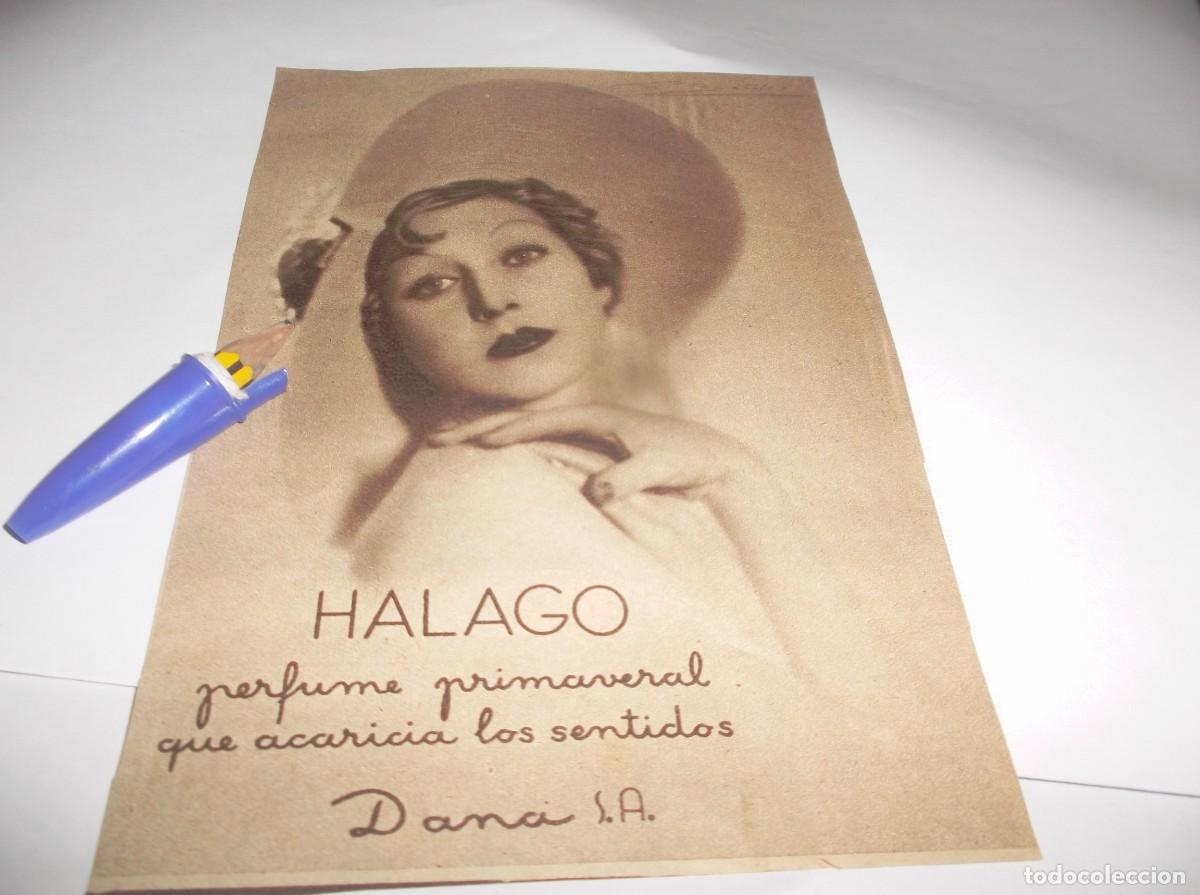 HALAGO
perfume primaveral
que acaricia los sentidos
Dana S.A.
todocoleccion